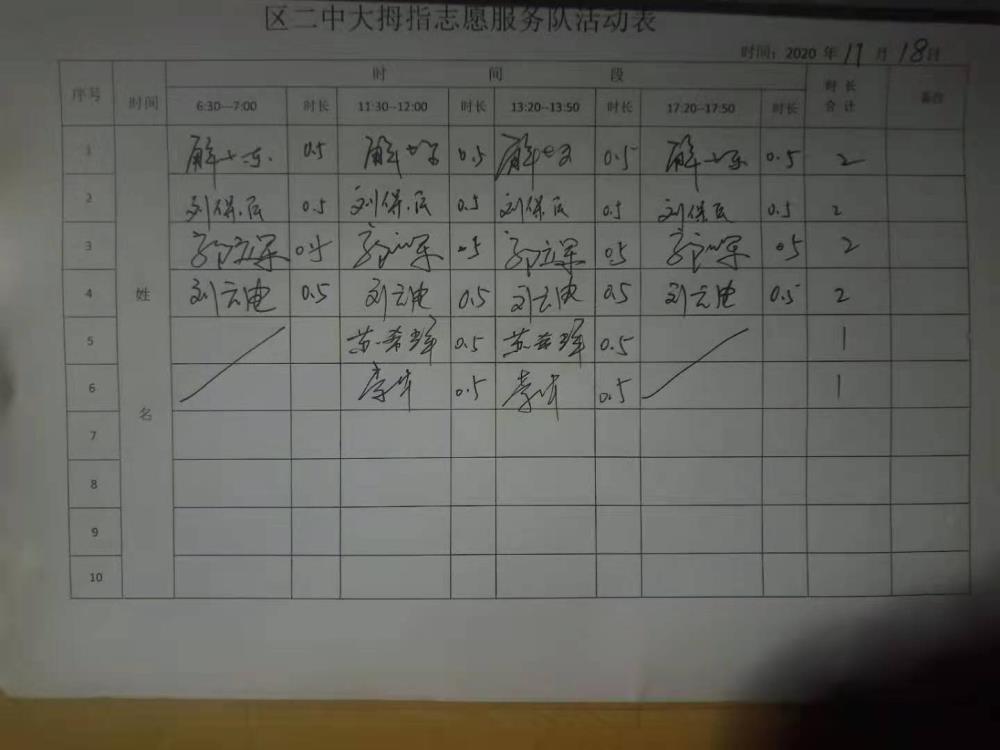 区二中大拇指志愿服务队活动表
时间：2020 年 11 月 18日
序号 时间 时 间 段 时 长 合 计 备注
6:30--7:00 时长 11:30--12:00 时长 13:20--13:50 时长 17:20--17:50 时长
姓 名
1 0.5 0.5 0.5 0.5 2
2 刘保民 0.5 刘保民 0.5 刘保民 0.5 刘保民 0.5 2
3 郭立军 0.5 郭立军 0.5 郭立军 0.5 郭立军 0.5 2
4 刘云电 0.5 刘云电 0.5 刘云电 0.5 刘云电 0.5 2
5 0.5 0.5 1
6 0.5 0.5 1
7
8
9
10